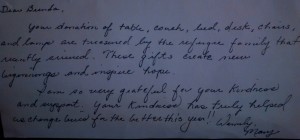 Dear Bemba,
Your donation of table, couch, bed, desk, chairs,
and lamps are treasured by the refugee family that
recently arrived. These gifts create new
beginnings and inspire hope.
I am so very grateful for your kindness
and support. Your kindness has truly helped
us change lives for the better this year!! Warmly,